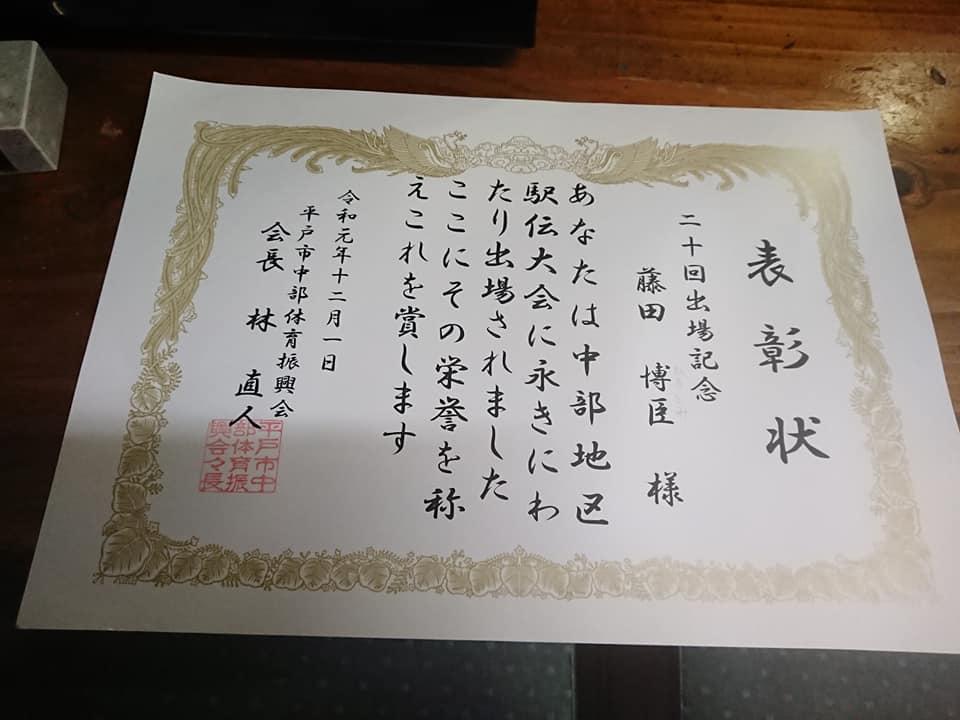 表彰状
二十回出場記念
藤田 博臣 様
あなたは中部地区
駅伝大会に永きにわ
たり出場されました
ここにその栄誉を称
えこれを賞します
令和元年十二月一日
平戸市中部体育振興会
会長 林 直人
平戸市中
部体育振
興会々長